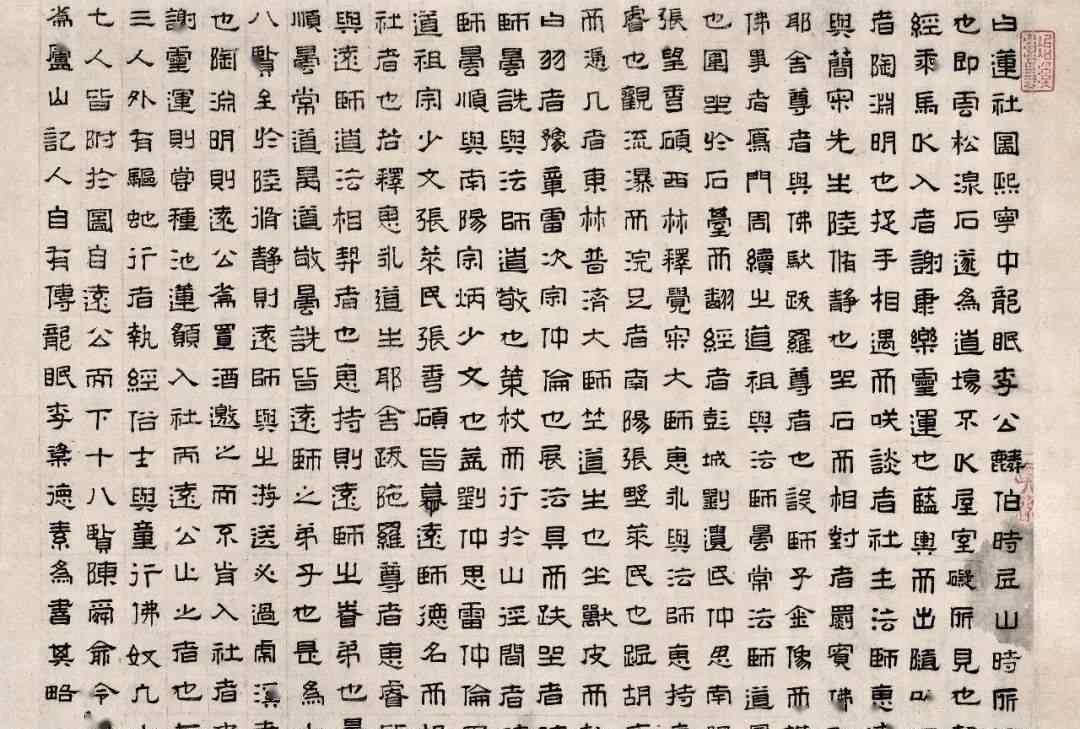 白蓮社圖熙寧中龍眠李公麟伯時丘山時所
也即雲松湶石遂為道場不以屋室礙所見也
經乘馬以入者謝康樂靈運也籃輿而出隨以
者陶淵明也捉手相遇而咲談者社主法師惠
與簡寂先生陸脩靜也坐石而相對者罽賓佛
耶舍尊者與佛馱跋羅尊者也設師子金像而
佛事者鴈門周續之道祖與法師曇常法師道
也圍坐於石臺而翻經者彭城劉遺民仲思南
張望秀碩西林釋覺寂大師惠永與法師惠持
睿也觀流瀑而浣足者南陽張野萊民也踞胡
而憑几者東林普濟大師竺道生也坐獸皮而
白羽者豫章雷次宗仲倫也展法具而趺坐者
師曇詵與法師道敬也策杖而行於山徑間者
師曇順與南陽宗炳少文也蓋劉仲思雷仲倫
道祖宗少文張萊民張秀碩皆慕遠師德名而
社者也若釋惠永道生耶舍跋陁羅尊者惠睿
與遠師道法相契者也惠持則遠師之眷弟也
順曇常道昺道敬曇詵皆遠師之弟子也是為
八賢至於陸脩靜則遠師與之游送必過虎溪
也陶淵明則遠公嘗置酒邀之而不肯入社者
謝靈運則嘗種池蓮願入社而遠公止之者也
三人外有驅虵行者執經俗士與童行佛奴凡
七人皆附於圖自遠公而下十八賢陳舜俞令
嵩廬山記人自有傳龍眠李楶德素為書其略